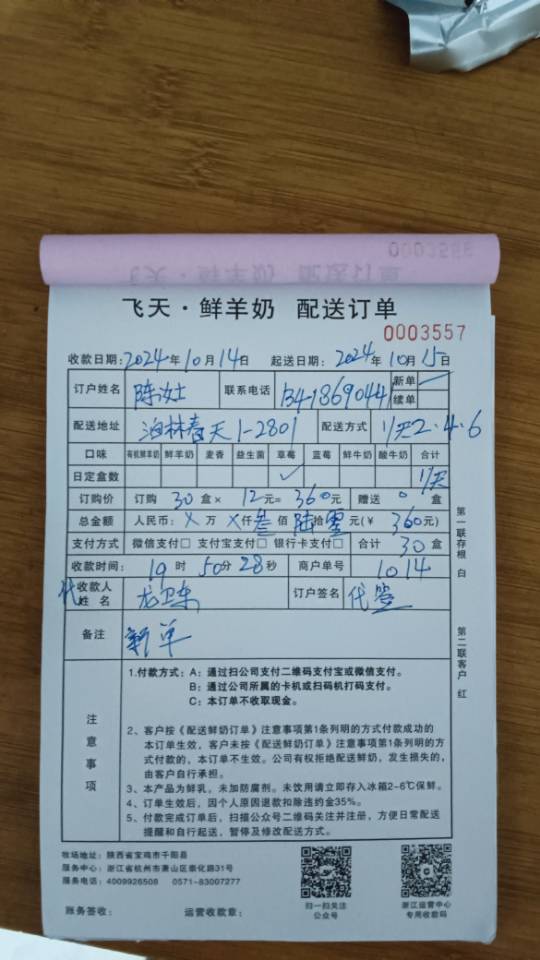 飞天·鲜羊奶 配送订单
0003557
收款日期:2024年10月14日 起送日期:2024年10月15日
订户姓名 陈女士 联系电话 新单
续单
配送地址 泊林春天1-2801 配送方式 1/天2·4·6
口味 有机鲜羊奶 鲜羊奶 麦香 益生菌 草莓 蓝莓 鲜牛奶 酸牛奶 合计
日定盒数 ✓ 1/天
订购价 订购 30 盒× 12元= 360元 赠送 0 盒
总金额 人民币: X万 X仟叁佰陆拾零元(¥ 360元)
支付方式 微信支付□ 支付宝支付□ 银行卡支付□ 合计 30 盒
收款时间: 19 时 50分 28秒 商户单号 1014
代收款人
姓名 龙卫东 订户签名 代签
备注 新单
第一联存根 白
第二联客户 红
注意事项
1.付款方式:A:通过扫公司支付二维码支付宝或微信支付。
B:通过公司所属的卡机或扫码机打码支付。
C:本订单不收取现金。
2、客户按《配送鲜奶订单》注意事项第1条列明的方式付款成功的
本订单生效,客户未按《配送鲜奶订单》注意事项第1条列明的方
式付款的,本订单不生效。公司有权拒绝配送鲜奶,发生损失的,
由客户自行承担。
3、本产品为鲜乳。未加防腐剂。未饮用请立即存入冰箱2-6℃保鲜。
4、订单生效后,因个人原因退款扣除违约金35%。
5、付款完成订单后,扫描公众号二维码关注并注册,方便日常配送
提醒和自行起送,暂停及修改配送方式。
牧场地址:陕西省宝鸡市千阳县
服务中心:浙江省杭州市萧山区崇化路31号
服务电话:4009926508 0571-83007277
扫一扫关注
公众号
浙江运营中心
专用收款码
账务签收: 运营收款章: